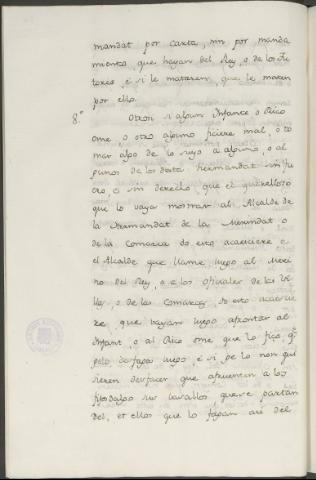 mandat por carta, nin por manda
miento que hayan del Rey, o de los Tu
tores, e si le mataren, que le maten
por ello.
8.º Otrosi si algun Infante o Rico
ome, o otro alguno ficiere mal, o to
mar algo de lo suyo a alguno, o al
gunos de los desta hermandat sin fu
ero, e sin derecho, que el querelloso
que lo vaya mostrar al Alcalde de
la Hermandat de la Merindat o
de la Comarca do esto acaesciere e
el Alcalde que llame luego al Meri
no del Rey, o a los oficiales de las Vi
llas, o de las Comarcas, do esto acaescie
re, que vayan luego afrontar al
Infant, o al Rico ome que lo fiço, q.e
gelo desfaga luego e si gelo non qui
sieren desfacer que afruenten a los
fijosdalgo sus vasallos que se partan
del, et ellos que lo fagan asi del